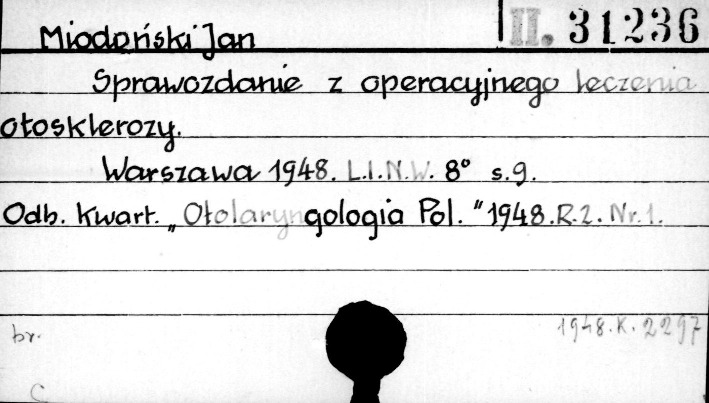 Miodoński Jan
II. 31236
Sprawozdanie z operacyjnego leczenia
otosklerozy.
Warszawa 1948. L.I.N.W. 8° s.9.
Odb. Kwart. „Otolaryngologia Pol." 1948.R.2. Nr.1.
br.
1948.K.2297
C